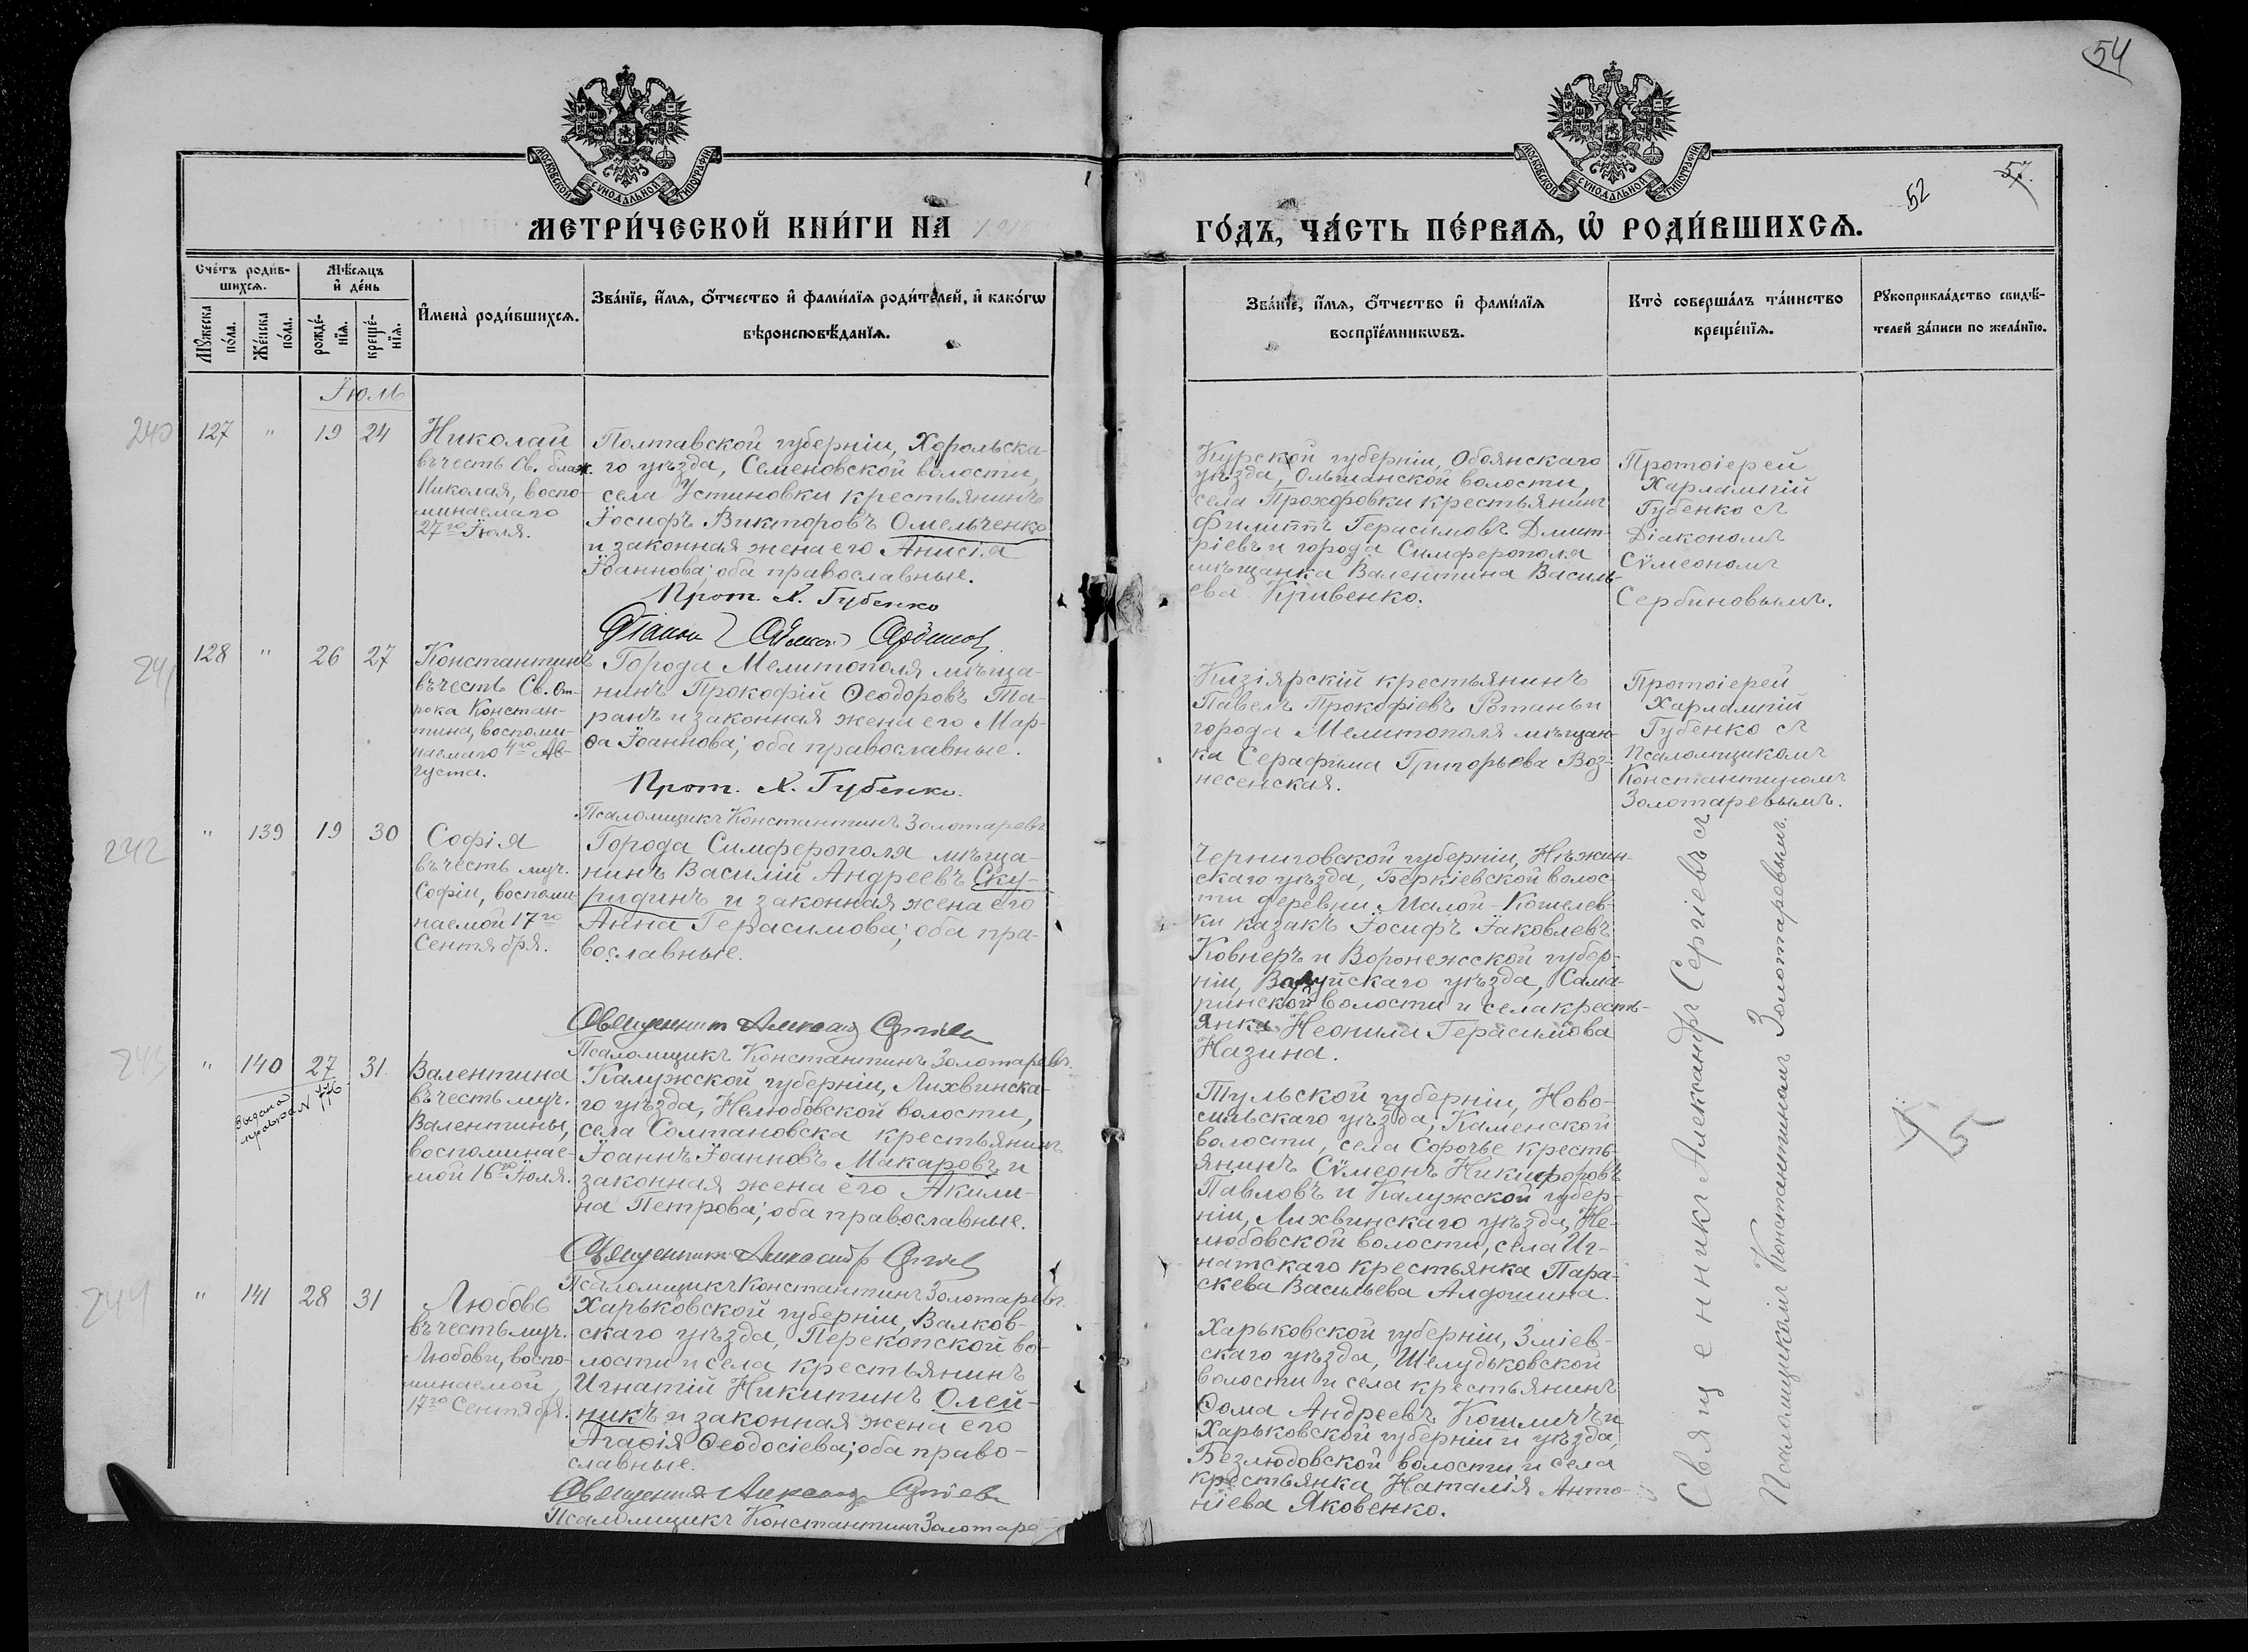 54
МОСКОВСКОЙ СУНОДАЛЬНОЙ ТИПОГРАФИИ
МОСКОВСКОЙ СУНОДАЛЬНОЙ ТИПОГРАФИИ
57.
52
МЕТРИ́ЧЕСКОЙ КНИ́ГИ НА
ГО́ДЪ, ЧА́СТЬ ПЕ́РВАѦ, Ѡ҆ РОДИ́ВШИХСѦ.
Сче́тъ роди́в-
шихсѧ.
Мꙋ́жеска
по́ла.
Же́нска
по́ла.
Мѣ́сѧцъ
и҆ де́нь
рожде́-
нїѧ.
креще́-
нїѧ.
И҆мена̀ роди́вшихсѧ.
Зва́нїе, и҆́мѧ, ѻ҆́тчество и҆ фами́лїѧ роди́телей, и҆ како́гѡ
вѣроисповѣ́данїѧ.
Зва́нїе, и҆́мѧ, ѻ҆́тчество и҆ фами́лїѧ
воспрїе́мникѡвъ.
Кто̀ соверша́лъ та́инство
креще́нїѧ.
Рꙋкоприкла́дство свидѣ́-
телей за́писи по жела́нїю.
Іюль
240
127 " 19 24
Николай
въ честь Св. блаж.
Николая, воспо-
минаемаго
27го Іюля.
Полтавской губерніи, Хорольска-
го уѣзда, Семеновской волости,
села Устиновки крестьянинъ
Іосифъ Викторовъ Омельченко
и законная жена его Анисія
Іоаннова; оба православные.
Прот. Х. Губенко
Діаконъ Сѵмеонъ Сербиновъ
Курской губерніи, Обоянскаго
уѣзда, Ольшанской волости,
села Прохоровки крестьянинъ
Филиппъ Герасимовъ Дмит-
ріевъ и города Симферополя
мѣщанка Валентина Василь-
ева Кривенко.
Протоіерей
Харлампій
Губенко съ
Діакономъ
Сѵмеономъ
Сербиновымъ.
241
128 " 26 27
Константинъ
въ честь Св. От-
рока Констан-
тина, воспоми-
наемаго 4го Ав-
густа.
Города Мелитополя мѣща-
нинъ Прокофій Ѳеодоровъ Та-
ранъ и законная жена его Мар-
ѳа Іоаннова; оба православные.
Прот. Х. Губенко.
Псаломщикъ Константинъ Золотаревъ
Кизіярскій крестьянинъ
Павелъ Прокофіевъ Ротань и
города Мелитополя мѣщан-
ка Серафима Григорьева Воз-
несенская.
Протоіерей
Харлампій
Губенко съ
Псаломщикомъ
Константиномъ
Золотаревымъ.
242
" 139 19 30
Софія
въ честь муч.
Софіи, воспоми-
наемой 17го
Сентября.
Города Симферополя мѣща-
нинъ Василій Андреевъ Ску-
ридинъ и законная жена его
Анна Герасимова; оба пра-
вославные.
Священникъ Александръ Сергіевъ
Псаломщикъ Константинъ Золотаревъ
Черниговской губерніи, Нѣжин-
скаго уѣзда, Беркіевской волос-
ти деревни Малой-Кошелев-
ки казакъ Іосифъ Іаковлевъ
Ковнеръ и Воронежской губер-
ніи, Валуйскаго уѣзда, Сама-
ринской волости и села кресть-
янка Неонила Герасимова
Назина.
Священникъ Александръ Сергіевъ съ
Псаломщикомъ Константиномъ Золотаревымъ.
243
" 140 27 31
Выдана
правка N 116
Валентина
въ честь муч.
Валентины,
воспоминае-
мой 16го Іюля.
Калужской губерніи, Лихвинска-
го уѣзда, Нелюбовской волости,
села Солтановска крестьянинъ
Іоаннъ Іоанновъ Макаровъ и
законная жена его Акили-
на Петрова; оба православные.
Священникъ Александръ Сергіевъ
Псаломщикъ Константинъ Золотаревъ.
Тульской губерніи, Ново-
сильскаго уѣзда, Каменской
волости, села Сорочье кресть-
янинъ Сѵмеонъ Никифоровъ
Павловъ и Калужской губер-
ніи, Лихвинскаго уѣзда, Не-
любовской волости, села Иг-
натскаго крестьянка Пара-
скева Васильева Алдошина.
45
244
" 141 28 31
Любовь
въ честь муч.
Любови, воспо-
минаемой
17го Сентября.
Харьковской губерніи, Валков-
скаго уѣзда, Перекопской во-
лости и села крестьянинъ
Игнатій Никитинъ Олей-
никъ и законная жена его
Агаѳія Ѳеодосіева; оба право-
славные.
Священникъ Александръ Сергіевъ
Псаломщикъ Константинъ Золотаре
Харьковской губерніи, Зміев-
скаго уѣзда, Шелудьковской
волости и села крестьянинъ
Ѳома Андреевъ Кошличъ и
Харьковской губерніи и уѣзда,
Безлюдовской волости и села
крестьянка Наталія Анто-
ніева Яковенко.